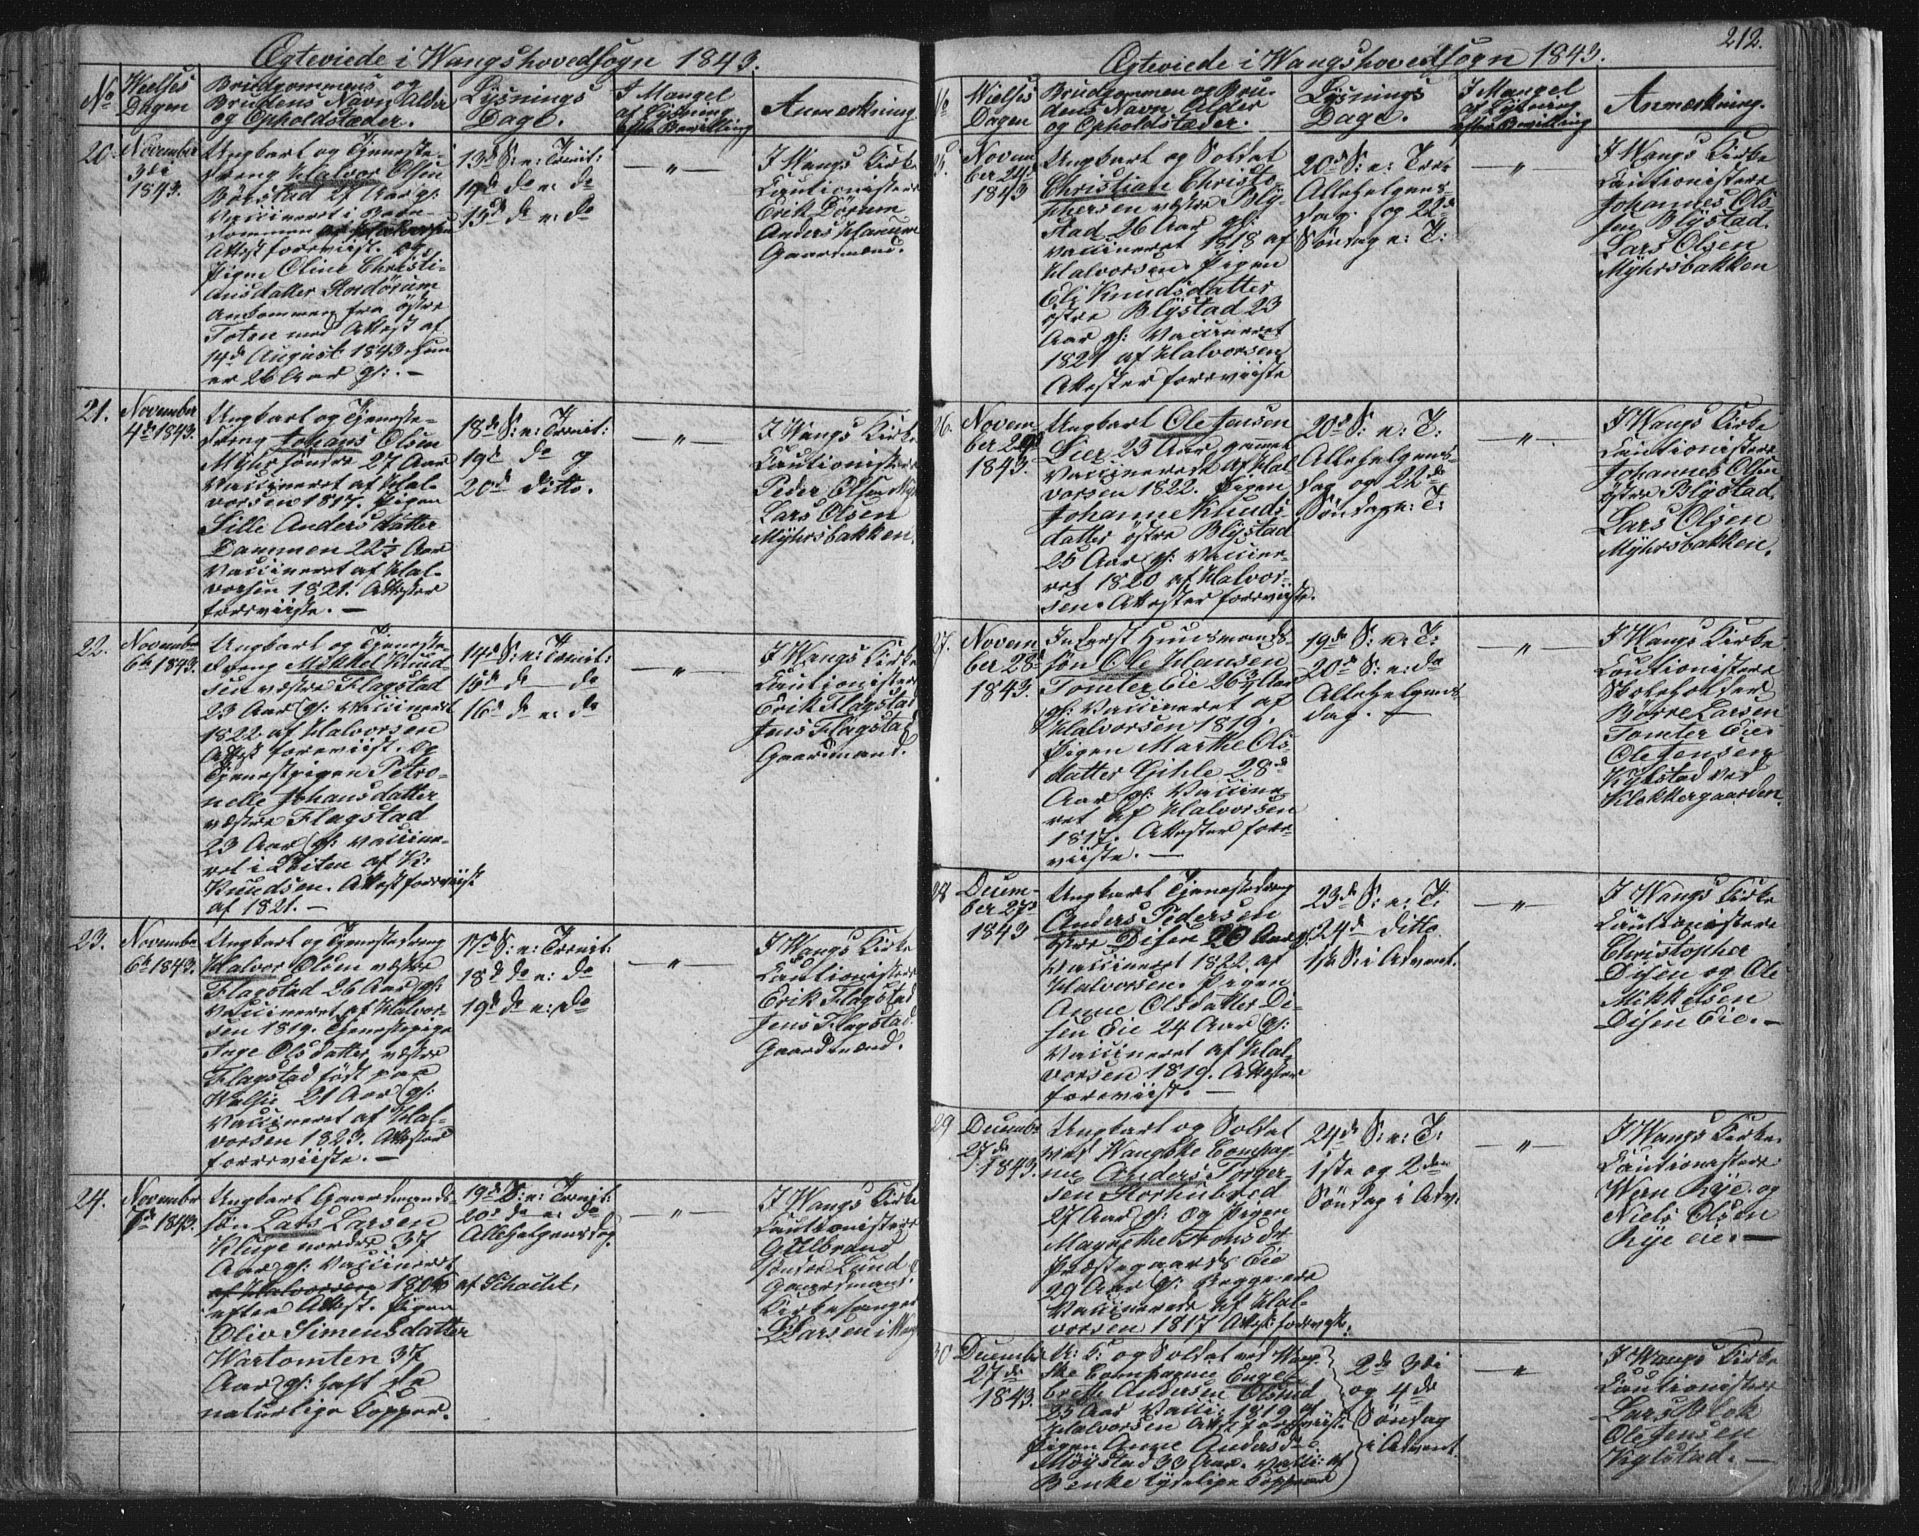 Ægteviede i Wangshovedsogn 1843.
No
Vielses Dagen
Brudgommens og
Brudens Navn Alder
og Opholdstæder.
Lysnings
Dage.
I Mangel
af Lysning
efter Bevilling
Anmærkning
20.
November
3die
1843.
Ungkart og Tjeneste
dreng Halvor Olsen
Børstad 27 Aar gl:
Vaccineret i Barn-
dommen
Attest foreviist. og
Pigen Oline Christi-
ansdatter
Ankommen fra østre
Toten med Attest af
14de August 1843. Hun
er 26 Aar gl:. —
13de S: e: Trinit:
14de do e: do
15de do e: do
— " —
I Wangs Kirke
Cautionister
Erik Dørum
Anders Hanum
Gaardmænd.
21.
November
4de 1843.
Ungkart og Tjeneste-
dreng Johans Olsen
Myhr søndre 27 Aar
Vaccineret af Hal-
vorsen 1817. Pigen
Sille Andersdatter
Dammen 22½ Aar
Vaccineret af Hal-
vorsen 1821. Attester
foreviiste. —
18de S: e: Trinit:
19de do og
20de ditto.
— " —
I Wangs Kirke
Cautionister
Peder Olsen Myhr
Lars Olsen
Myhrsbakken.
22.
November
6te 1843.
Ungkart og Tjeneste
dreng Mikkel Knud
sen vestre Flagstad
23 Aar gl: Vaccineret
1822 af Halvorsen
Attest foreviist. og
Tjenestpigen Petro-
nelle Johansdatter
vestre Flagstad
23 Aar gl: Vaccine-
ret i Løiten af K:
Knudsen. Attest foreviist
af 1821. —
14de S: e: Trinit:
15de do — do
16de do e: do
— " —
I Wangs Kirke
Cautionister
Erik Flagstad
Jens Flagstad
Gaardmænd.
23.
November
6te 1843.
Ungkart og Tjenestedreng
Halvor Olsen vestre
Flagstad 26 Aar gl:
Vaccineret af Halvor-
sen 1819. Tjenestepige
Inge Olsdatter vestre
Flagstad født paa
21 Aar gl:
Vaccineret af Hal-
vorsen 1823. Attester
foreviiste. —
17de S: e: Trinit:
18de do e: do
19de do e: do
— " —
I Wangs Kirke
Cautionister
Erik Flagstad
Jens Flagstad.
Gaardmænd.
24.
November
7de 1843.
Ungkart Gaardmands-
søn Lars Larsen
Kluge nordre 37
Aar gl: Vaccineret
af Halvorsen 1806 af Schacht.
efter Attest. Pigen
Oliv Simensdatter
Wartomten 37
Aar gl: haft de
naturlige Kopper.
19de S: e: Trinit:
20de do e: do
Allehelgensdag.
— " —
I Wangs Kirke
Cautionister
Gulbrand
søndre Lund
Gaardmand.
Kirkesanger
Larsen i Wang
212.
Ægteviede i Wangshovedsogn 1843.
No
Vielses
Dagen
Brudgommen og Bru-
dens Navn Alder
og Opholdstæder.
Lysnings
Dage.
I Mangel
af Lysning
efter Bevilling
Anmærkning.
25.
Novem
ber 24de
1843
Ungkart og Soldat
Christian Christo
phersen østre Bly-
stad 26 Aar gl:
vaccineret 1818 af
Halvorsen. Pigen
Eli Knudsdatter
østre Blystad 23
Aar gl: Vaccineret
1821 af Halvorsen
Attester foreviiste
20de S: e: Tre.
Allehelgens
dag. og 22de
Søndag e: T:
— " —
I Wangs Kirke
Cautionister
Johannes Ol-
sen Blystad.
Lars Olsen
Myhrsbakken
26.
Novem
ber
1843.
Ungkart Ole Jensen
23 Aar gammel
Vaccineret af Hal
vorsen 1822. Pigen
Johanne Knuds
datter østre Blystad
25 Aar gl: Vaccine-
ret 1820 af Halvor-
sen. Attester foreviiste.
20de S: e: T:
Allehelgens-
dag og 22de
Søndag e: T:
— " —
I Wangs Kirke
Cautionister
Johannes Olsen
østre Blystad.
Lars Olsen
Myhrsbakken.
27.
Novem
ber 28de
1843.
Inderst Huusmands
søn Ole Hansen
Tomter Eie 26¾ Aar
gl: Vaccineret af
Halvorsen 1819.
Pigen Marthe Ols-
datter Gihle 28de
Aar gl: Vaccine-
ret af Halvorsen
1817. Attester fore-
viiste. —
19de S: e: T:
20de S: e: do
Allehelgens
dag. —
— " —
I Wangs Kirke
Cautionister
Skoleholder
Børre Larsen
Tomter Eie
Ole Jensen
Kylstad ved
Klokkergaarden.
28
Decem-
ber 27de
1843
Ungkart Tjenestedreng
Anders Pedersen
østre Disen 20 Aar gl:
Vaccineret 1822 af
Halvorsen. Pigen
Anne Olsdatter Di-
sen Eie 24 Aar gl:
Vaccineret af Hal-
vorsen 1819. Attester
foreviist. —
23de S: e: T:
24de ditto
1ste S: i Advent.
— " —
I Wangs Kirke
Cautionister
Christopher
Disen og Ole
Mikkelsen
Disen Eie. —
29
Decembr
27de
1843.
Ungkart og Soldat
ved Wangske Compag-
nie Anders Torger-
sen
27 Aar gl: og Pigen
Magrethe Tronsdt
Præstegaards Eie
29 Aar gl: Begge ere
Vaccinerede af Hal-
vorsen 1817 Attest: forevist.
24de S: e: T:
1ste og 2den
Søndag i Adv:
— " —
I Wangs Kirke.
Cautionister
Kye og
Niels Olsen
Kye eie. —
30
Decembr
27de
1843.
U: K: og Soldat ved Wang
ske Compagnie Engel-
breth Andersen
25 Aar Vacci: 1819 af
Halvorsen Attest foreviist.
Pigen Anne Andersd
Møystad 33 Aar. Vacci: af
Benke tydelige Kopper
2de 3die
og 4de
Søndag
i Advent
— " —
I Wangs Kirke
Cautionister
Lars
Ole Jensen
Kylstad. —